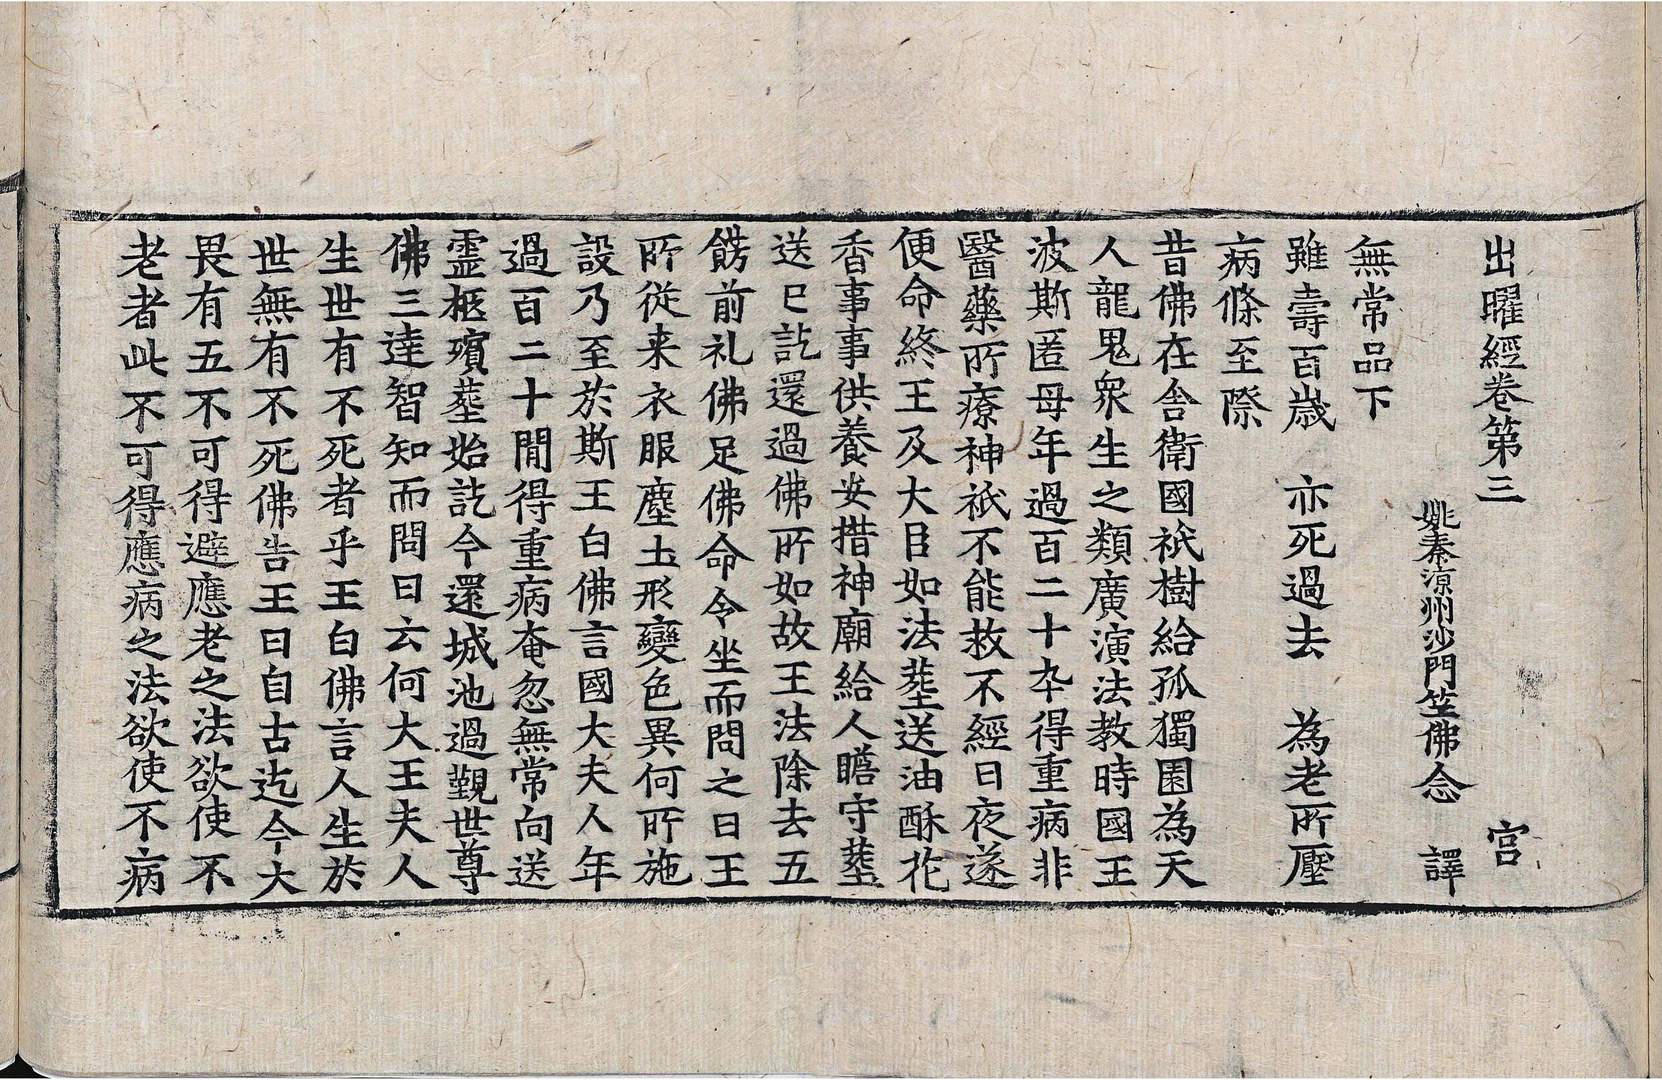 出曜經卷第三 宮
姚秦涼州沙門竺佛念 譯
無常品下
雖壽百歲 亦死過去 為老所壓
病條至際
昔佛在舍衛國祇樹給孤獨園為天
人龍鬼衆生之類廣演法教時國王
波斯匿母年過百二十卒得重病非
醫藥所療神祇不能救不經日夜遂
便命終王及大臣如法葬送油酥花
香事事供養安措神廟給人瞻守葬
送已訖還過佛所如故王法除去五
餝前礼佛足佛命令坐而問之曰王
所從来衣服塵土形變色異何所施
設乃至於斯王白佛言國大夫人年
過百二十間得重病奄忽無常向送
霊柩殯葬始訖今還城池過覲世尊
佛三達智知而問曰云何大王夫人
生世有不死者乎王白佛言人生於
世無有不死佛告王曰自古迄今大
畏有五不可得避應老之法欲使不
老者此不可得應病之法欲使不病